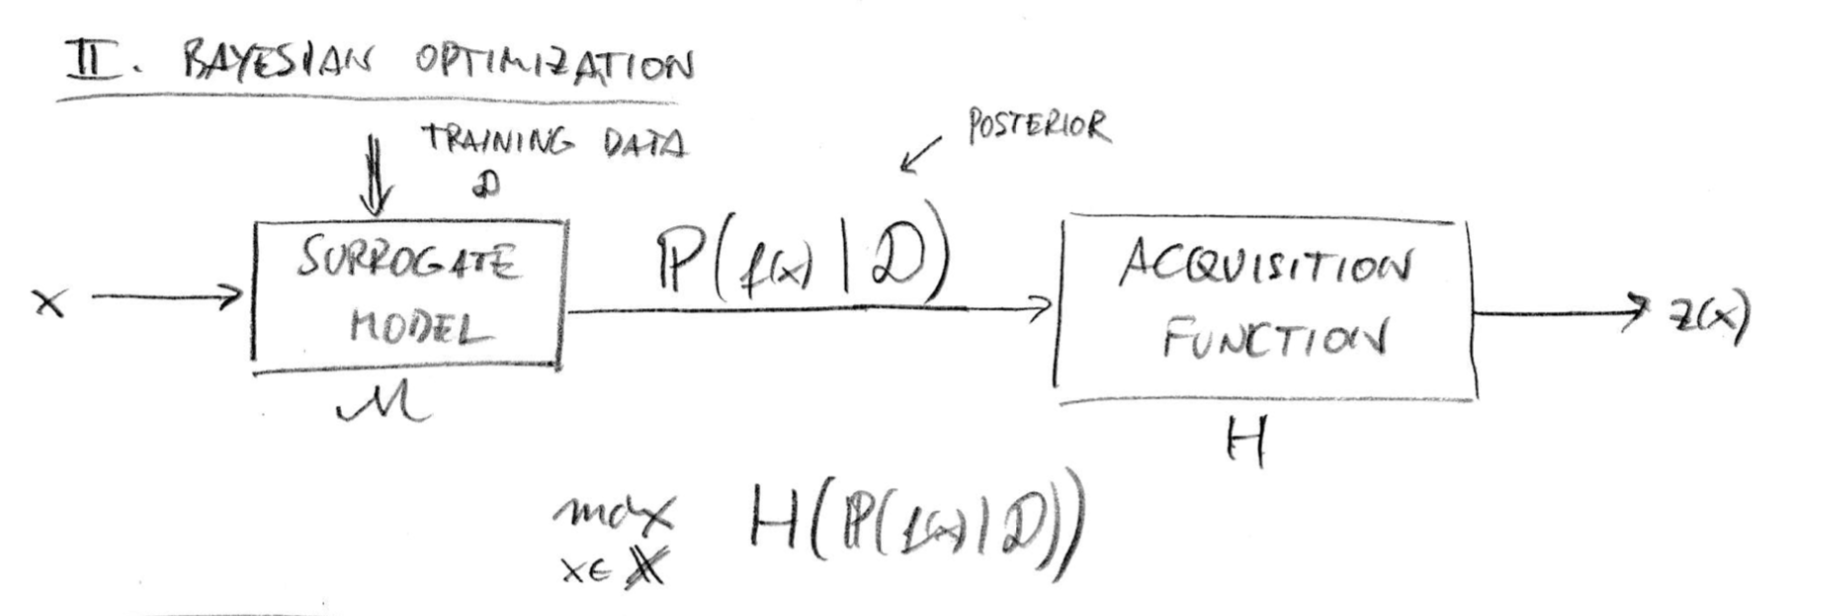 II. BAYESIAN OPTIMIZATION
TRAINING DATA
𝒟
POSTERIOR
x
SURROGATE
MODEL
ℳ
ℙ(f(x) | 𝒟)
ACQUISITION
FUNCTION
H
z(x)
max H(ℙ(f(x) | 𝒟))
x ∈ 𝕏